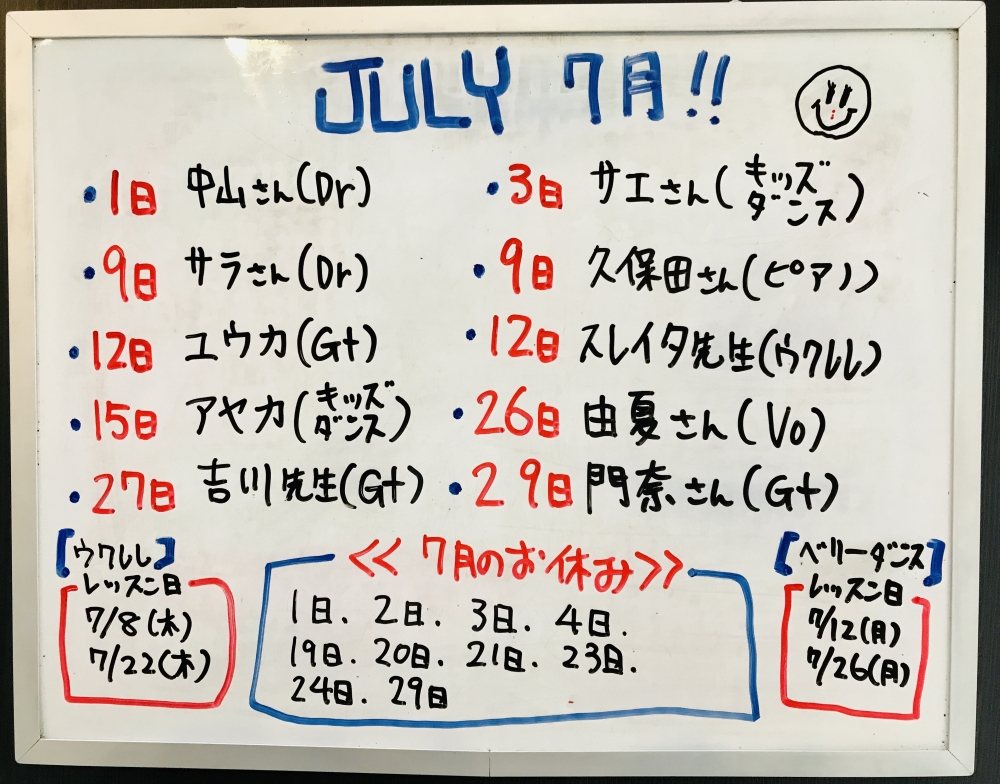 JULY 7月!!
・1日 中山さん(Dr)
・3日 サエさん(キッズダンス)
・9日 サラさん(Dr)
・9日 久保田さん(ピアノ)
・12日 ユウカ(Gt)
・12日 スレイタ先生(ウクレレ)
・15日 アヤカ(キッズダンス)
・26日 由夏さん(Vo)
・27日 吉川先生(Gt)
・29日 門奈さん(Gt)
【ウクレレ】
レッスン日
7/8(木)
7/22(木)
<<7月のお休み>>
1日.2日.3日.4日.
19日.20日.21日.23日.
24日.29日
【ベリーダンス】
レッスン日
7/12(月)
7/26(月)